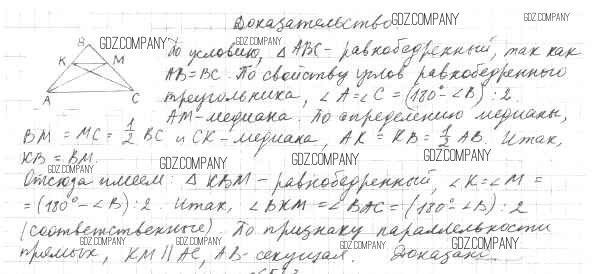 Доказательство GDZ.COMPANY
B GDZ.COMPANY GDZ.COMPANY
K M По условию, △ABC - равнобедренный, так как
AB=BC. По свойству углов равнобедренного
A C треугольника, ∠A=∠C = (180°-∠B) : 2.
AM-медиана. По определению медианы,
BM = MC = 1/2 BC и CK-медиана, AK = KB = 1/2 AB. Итак,
KB = BM. GDZ.COMPANY GDZ.COMPANY GDZ.COMPANY
GDZ.COMPANY
Отсюда имеем: △KBM - равнобедренный, ∠K=∠M =
= (180°-∠B) : 2. Итак, ∠BKM = ∠BAC = (180°-∠B) : 2
(соответственные). По признаку параллельности
GDZ.COMPANY GDZ.COMPANY GDZ.COMPANY
прямых, KM || AC, AB-секущая. Доказано.